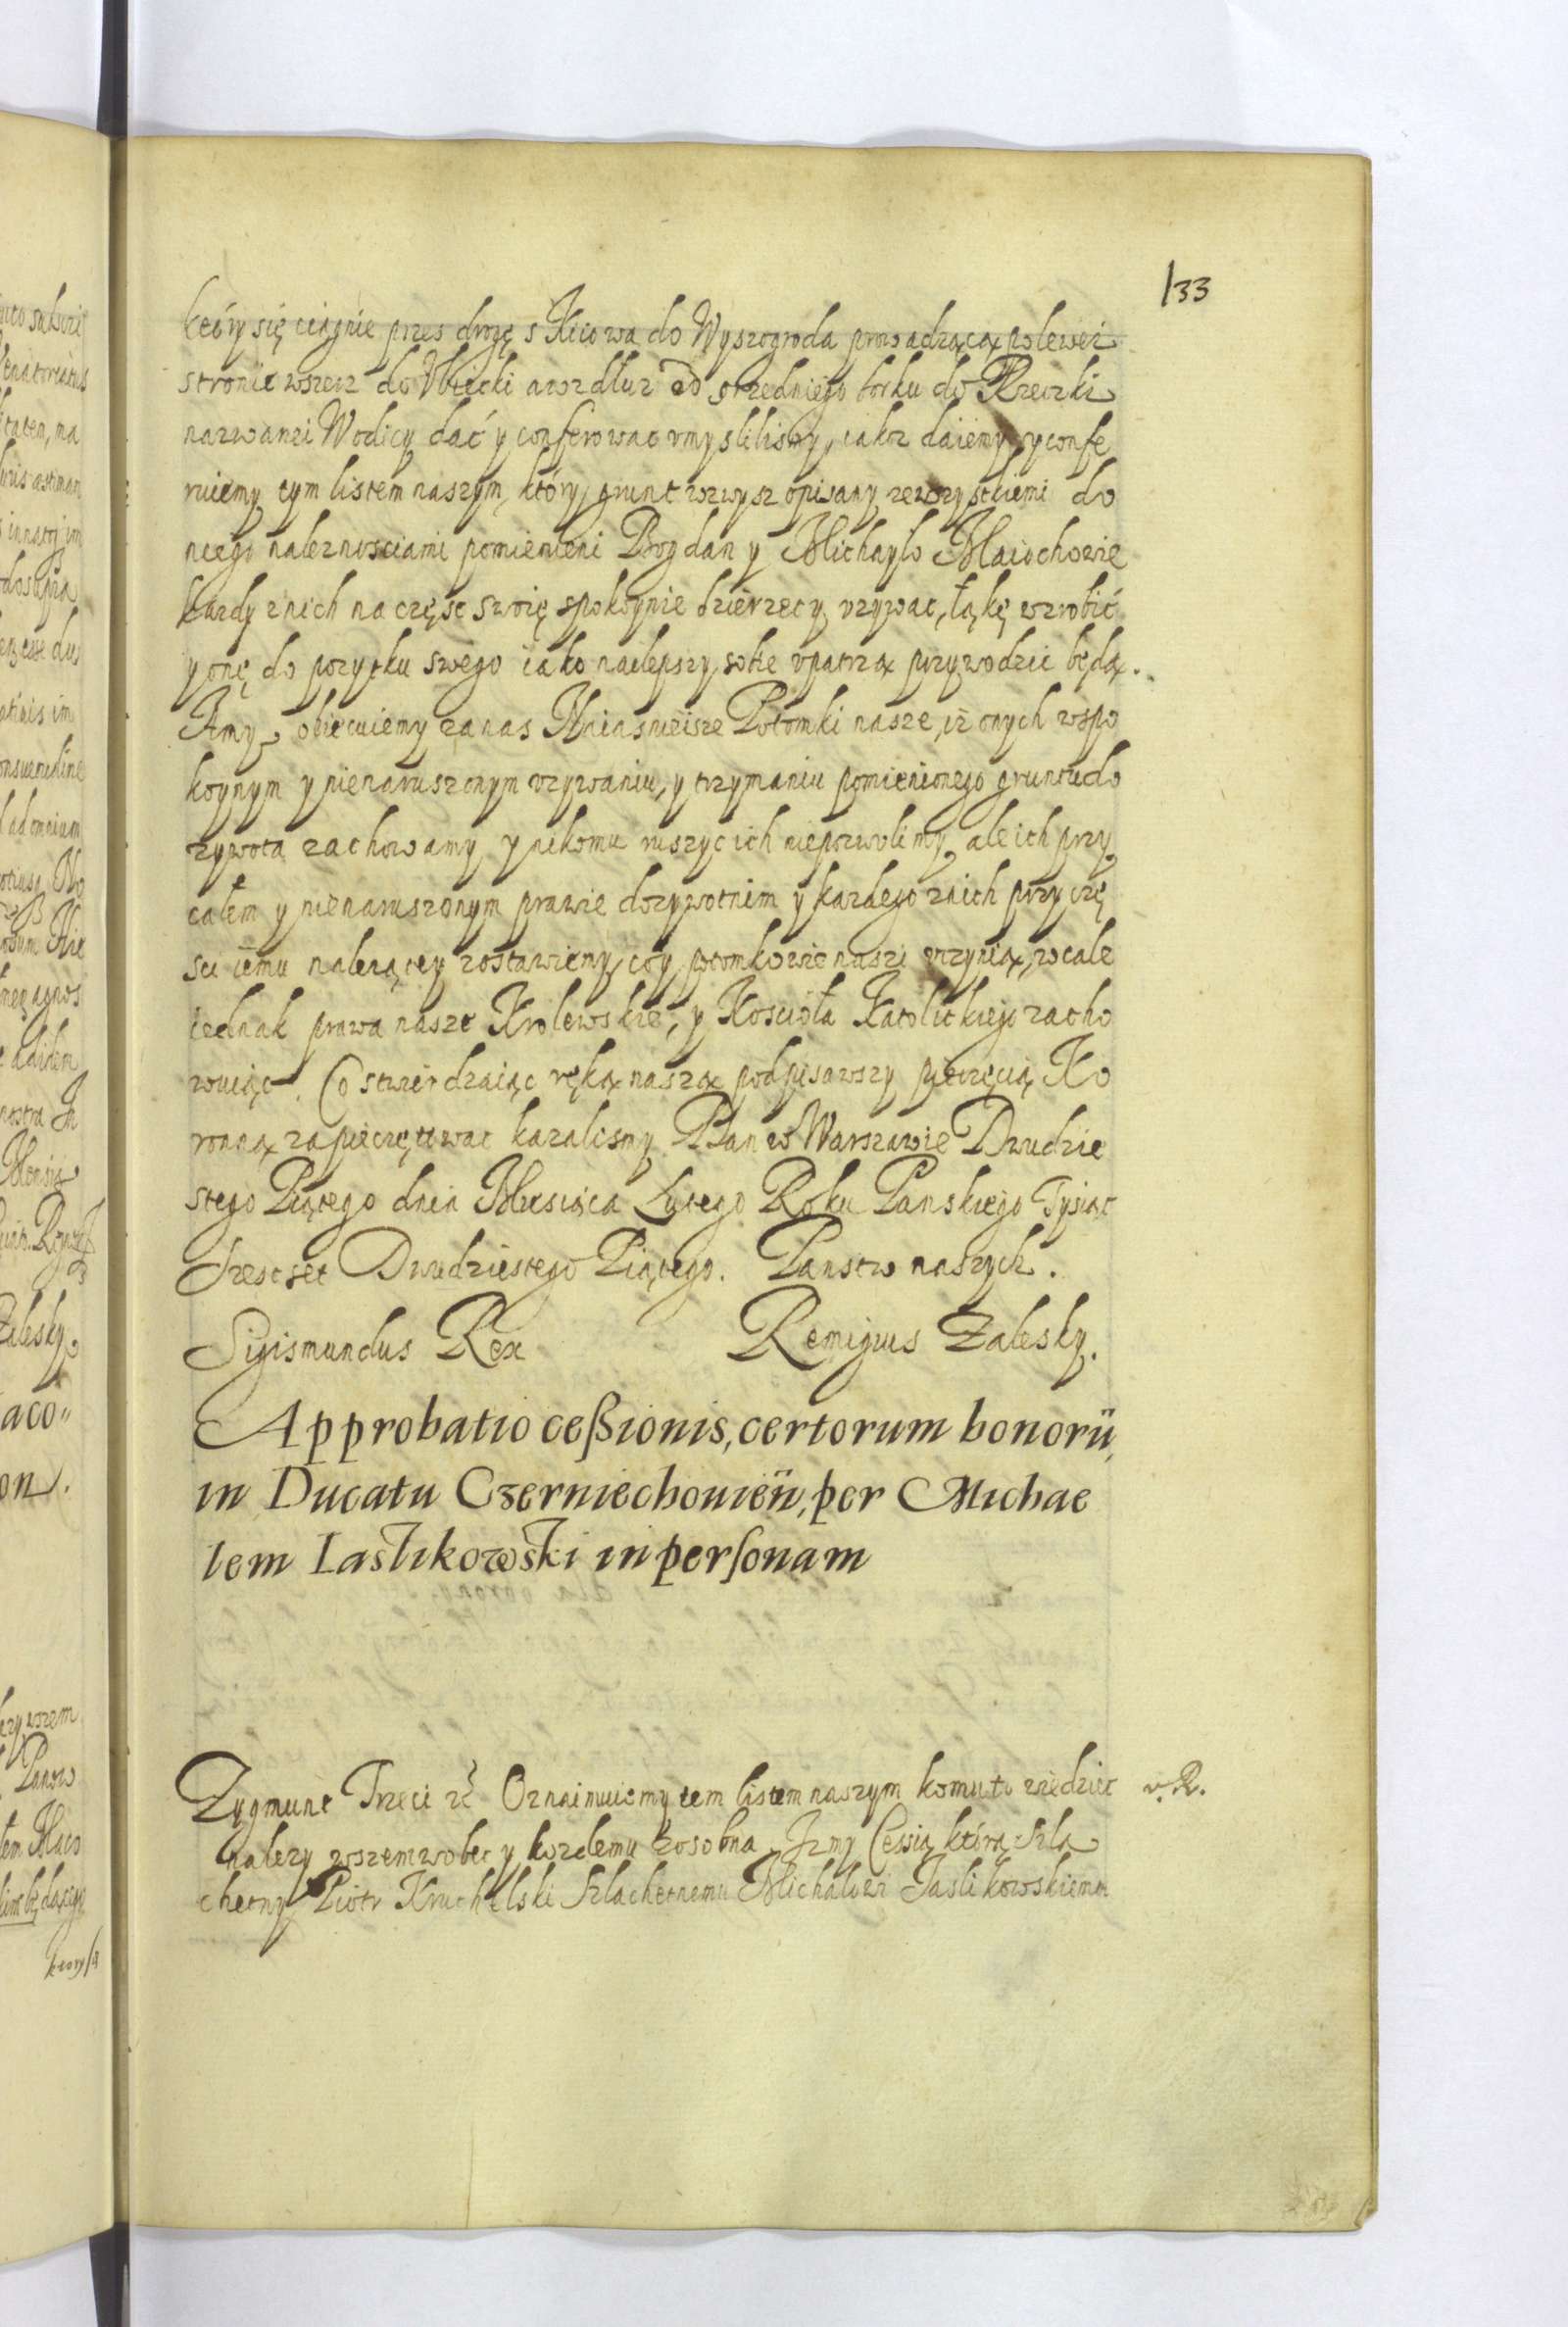 133
który się ciągnie przes drogę s Kiiowa do Wyszogroda prowadzącą po lewei
stronie wszerz do Vbiecki a wzdłuz od srzedniego borku do Rzeczki
nazwanei Wodicy dać y conferowac vmyslilismy, iakoz daiemy y confe
ruiemy tym listem naszym, który grunt wzwysz opisany ze wszystkiemi do
niego naleznosciami pomienieni Bogdan y Michayło Maiochowie
kazdy z nich na częsc swoię spokoynie dzierzec y vzywac, łąkę wzrobić
y onę do pozytku swego iako nalepszy sobie vpatrzą przywodzic będą.
A my obiecuiemy za nas Naiasnieisze Potomki nasze, iż onych w spo
koynym y nienaruszonym vzywaniu, y trzymaniu pomienionego gruntu do
zywota zachowamy y nikomu ruszyc ich niepozwolimy, ale ich przy
całem y nienaruszonym prawie dozywotnim y kazdego z nich przy czę
sci iemu nalezącey zostawiemy, co y potomkowie naszi vczynią, w cale
iednak prawa nasze Krolewskie, y Kosciola Katolickiego zacho
wuiąc. Co stwierdzaiąc ręką naszą podpisawszy pieczęcią Ko
ronną zapieczętowac kazalismy. Dan w Warszawie Dwudzie
stego Piątego dnia Miesiąca Lutego Roku Panskiego Tysiąc
Szescset Dwudziestego Piątego. Panstw naszych.
Sigismundus Rex Remigius Zalesky.
Approbatio ceßionis, certorum bonorū,
in Ducatu Czerniechouień, per Michae
lem Iaslikowski in personam
Zygmunt Trzeci rć Oznaimuiemy tem listem naszym komu to wiedziec
v. R.
nalezy wszem wobec y kozdemu zosobna. Iz my Cessią którą Szla
chetny Piotr Szlachetnemu Michałowi Iaslikowskiemu